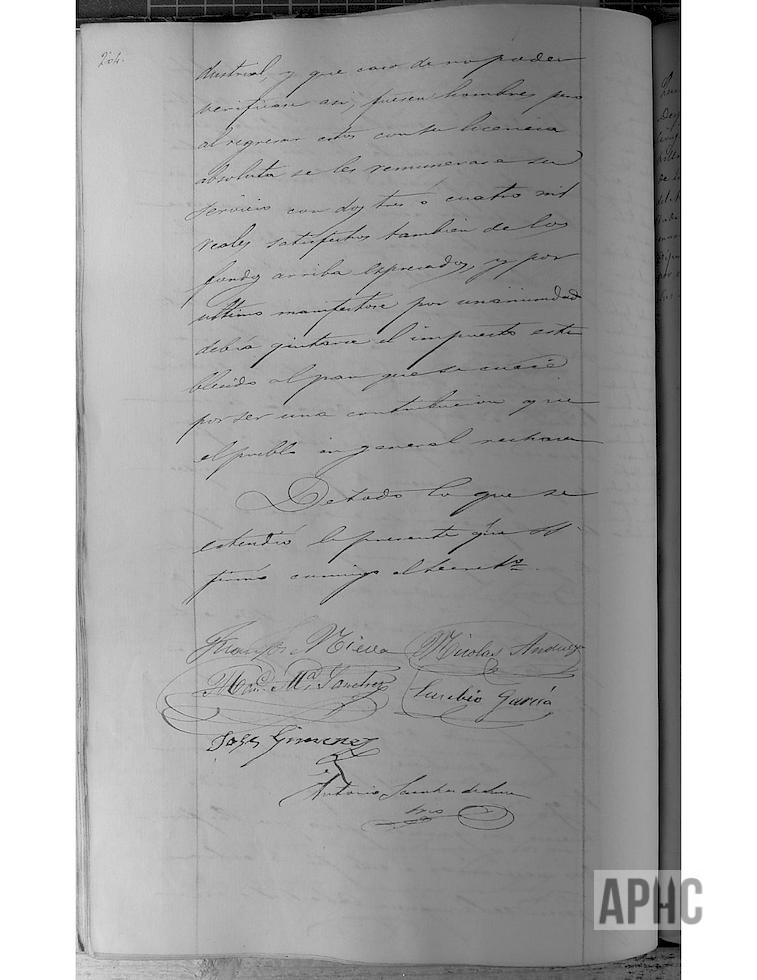 204.
dustrial, y que caso de no poder
verificase asi, fuesen hombres pero
al regresar estos con su licencia
absoluta se les remunerase su
servicio con dos tres o cuatro mil
reales satisfechos tambien de los
fondos arriba expresados, y por
ultimo manifestose por unanimidad
debia quitarse el impuesto esta
blecido al pan que se cuece
por ser una contribucion que
el pueblo en general rechaza
De todo lo que se
estendió la presente que
firmó conmigo el Secretº.
Nieva
Nicolas
Man. Mª. Sanchez
Eusebio García
Jose Gimenez
Antonio Sanchez de
APHC